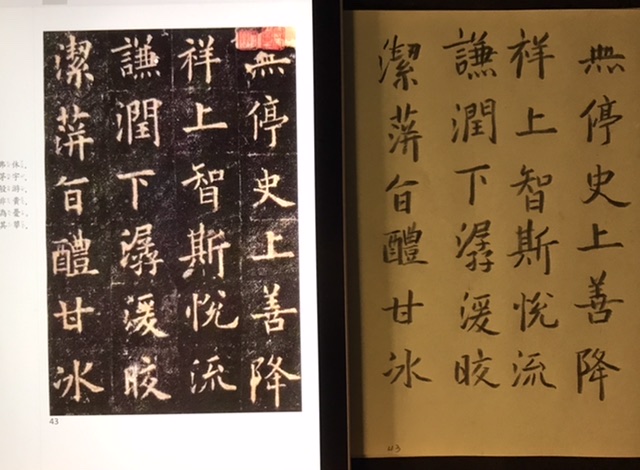 無停史上善降
祥上智斯悅流
謙潤下潺湲皎
潔蓱旨醴甘冰
43
無停史上善降
祥上智斯悅流
謙潤下潺湲皎
潔蓱旨醴甘冰
43